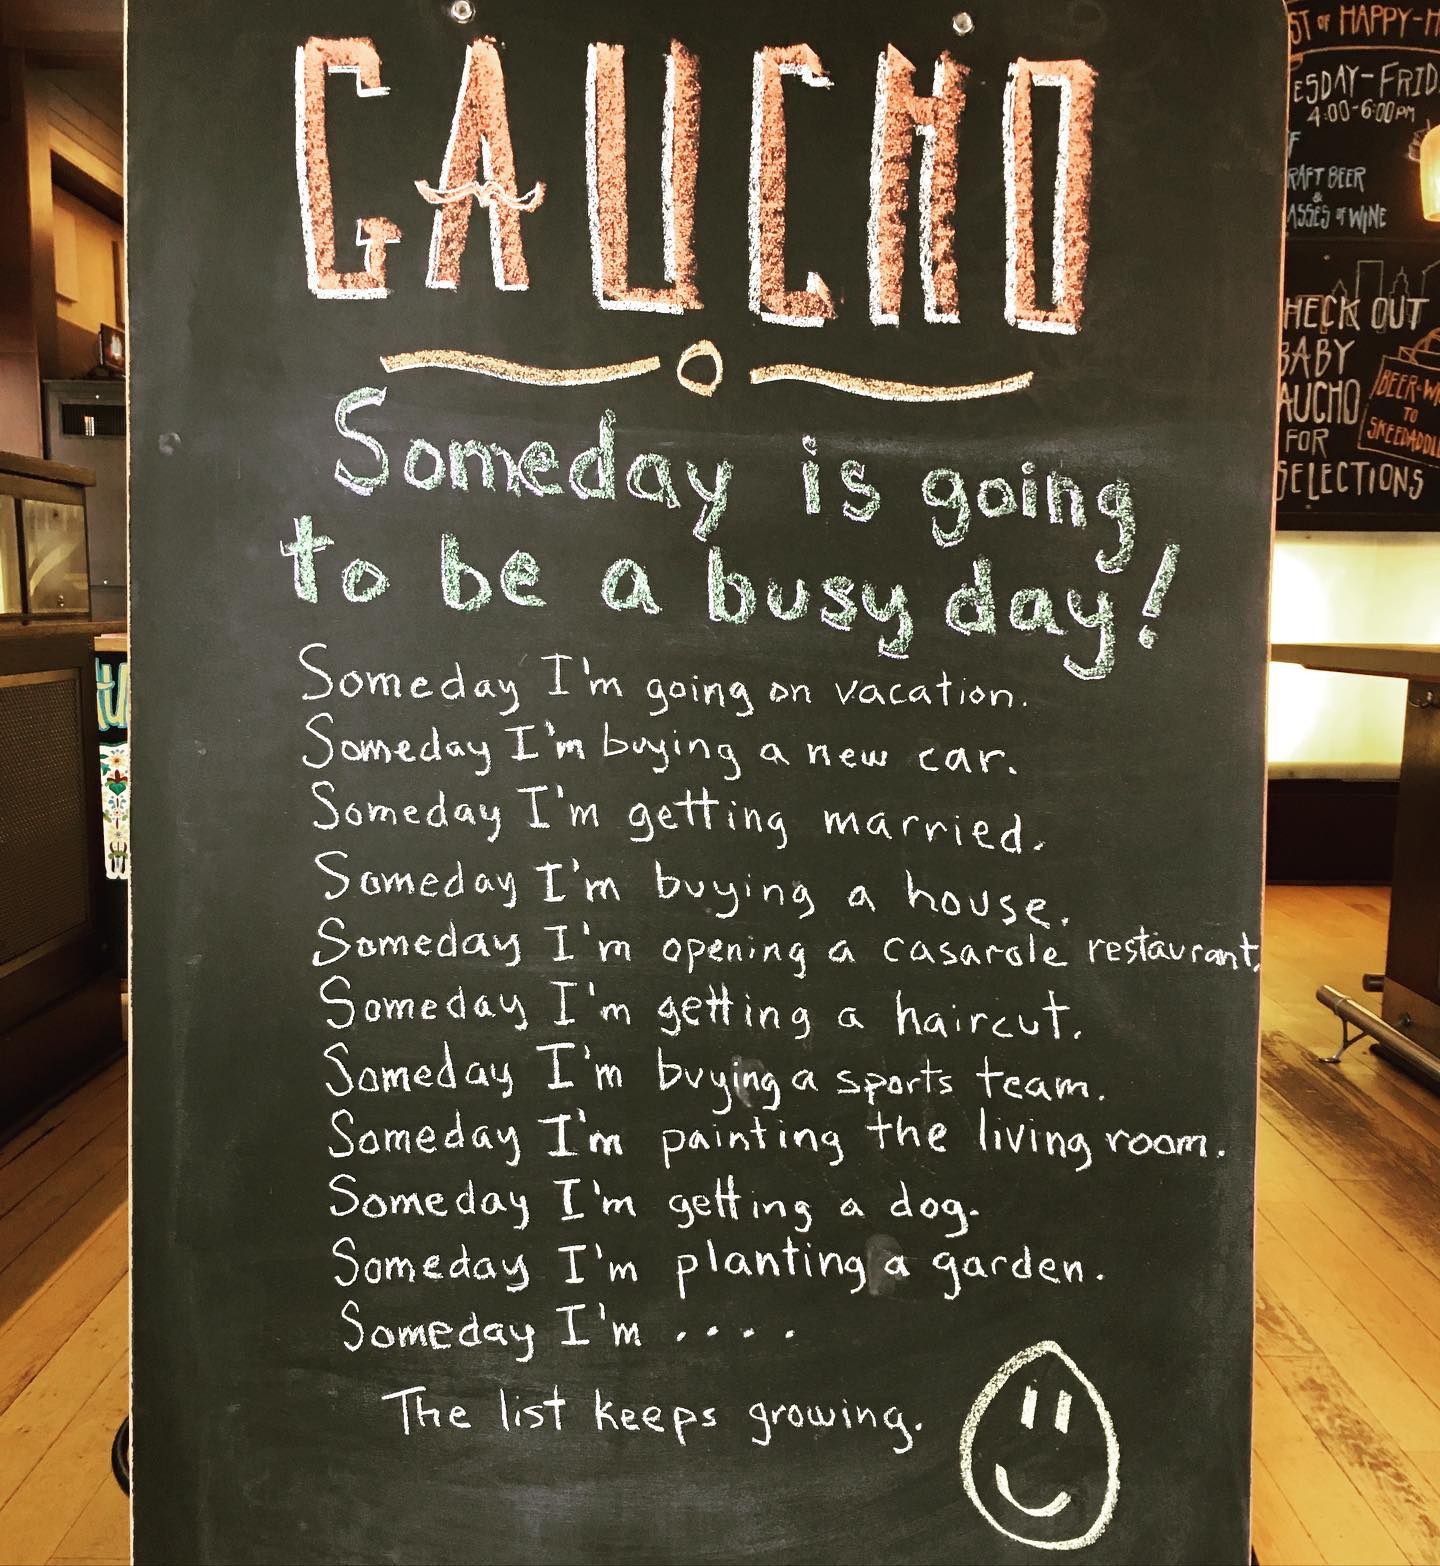 GAUCHO
Someday is going
to be a busy day!
Someday I'm going on vacation.
Someday I'm buying a new car.
Someday I'm getting married.
Someday I'm buying a house.
Someday I'm opening a casarole restaurant.
Someday I'm getting a haircut.
Someday I'm buying a sports team.
Someday I'm painting the living room.
Someday I'm getting a dog.
Someday I'm planting a garden.
Someday I'm ....
The list keeps growing.
ST of HAPPY-H
ESDAY-FRID
4:00-6:00PM
F
RAFT BEER
&
ASSES of WINE
HECK OUT
BABY
AUCHO
FOR
SELECTIONS
BEER-W
TO
SKEEDADDL